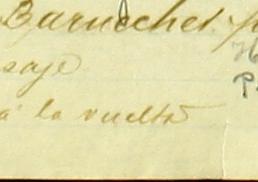 Barnechet
saje
a' la vuelta